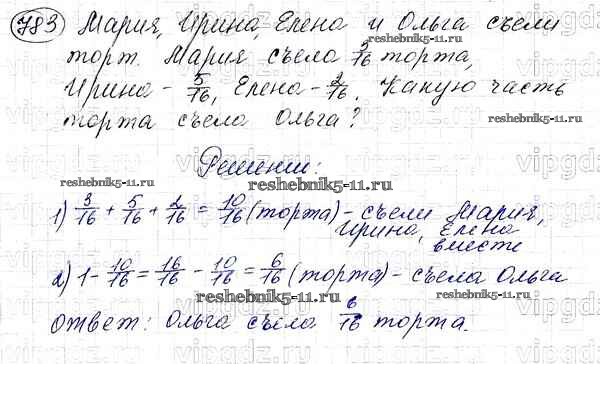 783 Мария, Ирина, Елена и Ольга съели
торт. Мария съела 3/16 торта,
Ирина - 5/16, Елена - 2/16. Какую часть
торта съела Ольга?
Решение:
1) 3/16 + 5/16 + 2/16 = 10/16 (торта) - съели Мария,
Ирина, Елена
вместе
2) 1 - 10/16 = 16/16 - 10/16 = 6/16 (торта) - съела Ольга
Ответ: Ольга съела 6/16 торта.
reshebnik5-11.ru
reshebnik5-11.ru
reshebnik5-11.ru
reshebnik5-11.ru
reshebnik5-11.ru
reshebnik5-11.ru
vipgdz.ru